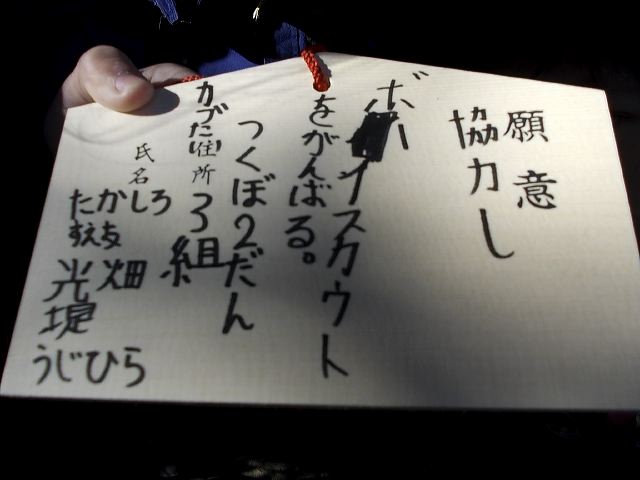 願意
協力し
ボーイスカウト
をがんばる。
つくぼ2だん
カブた(住所)3組
氏名
しろ
かえ畑
たすく光
うじひら